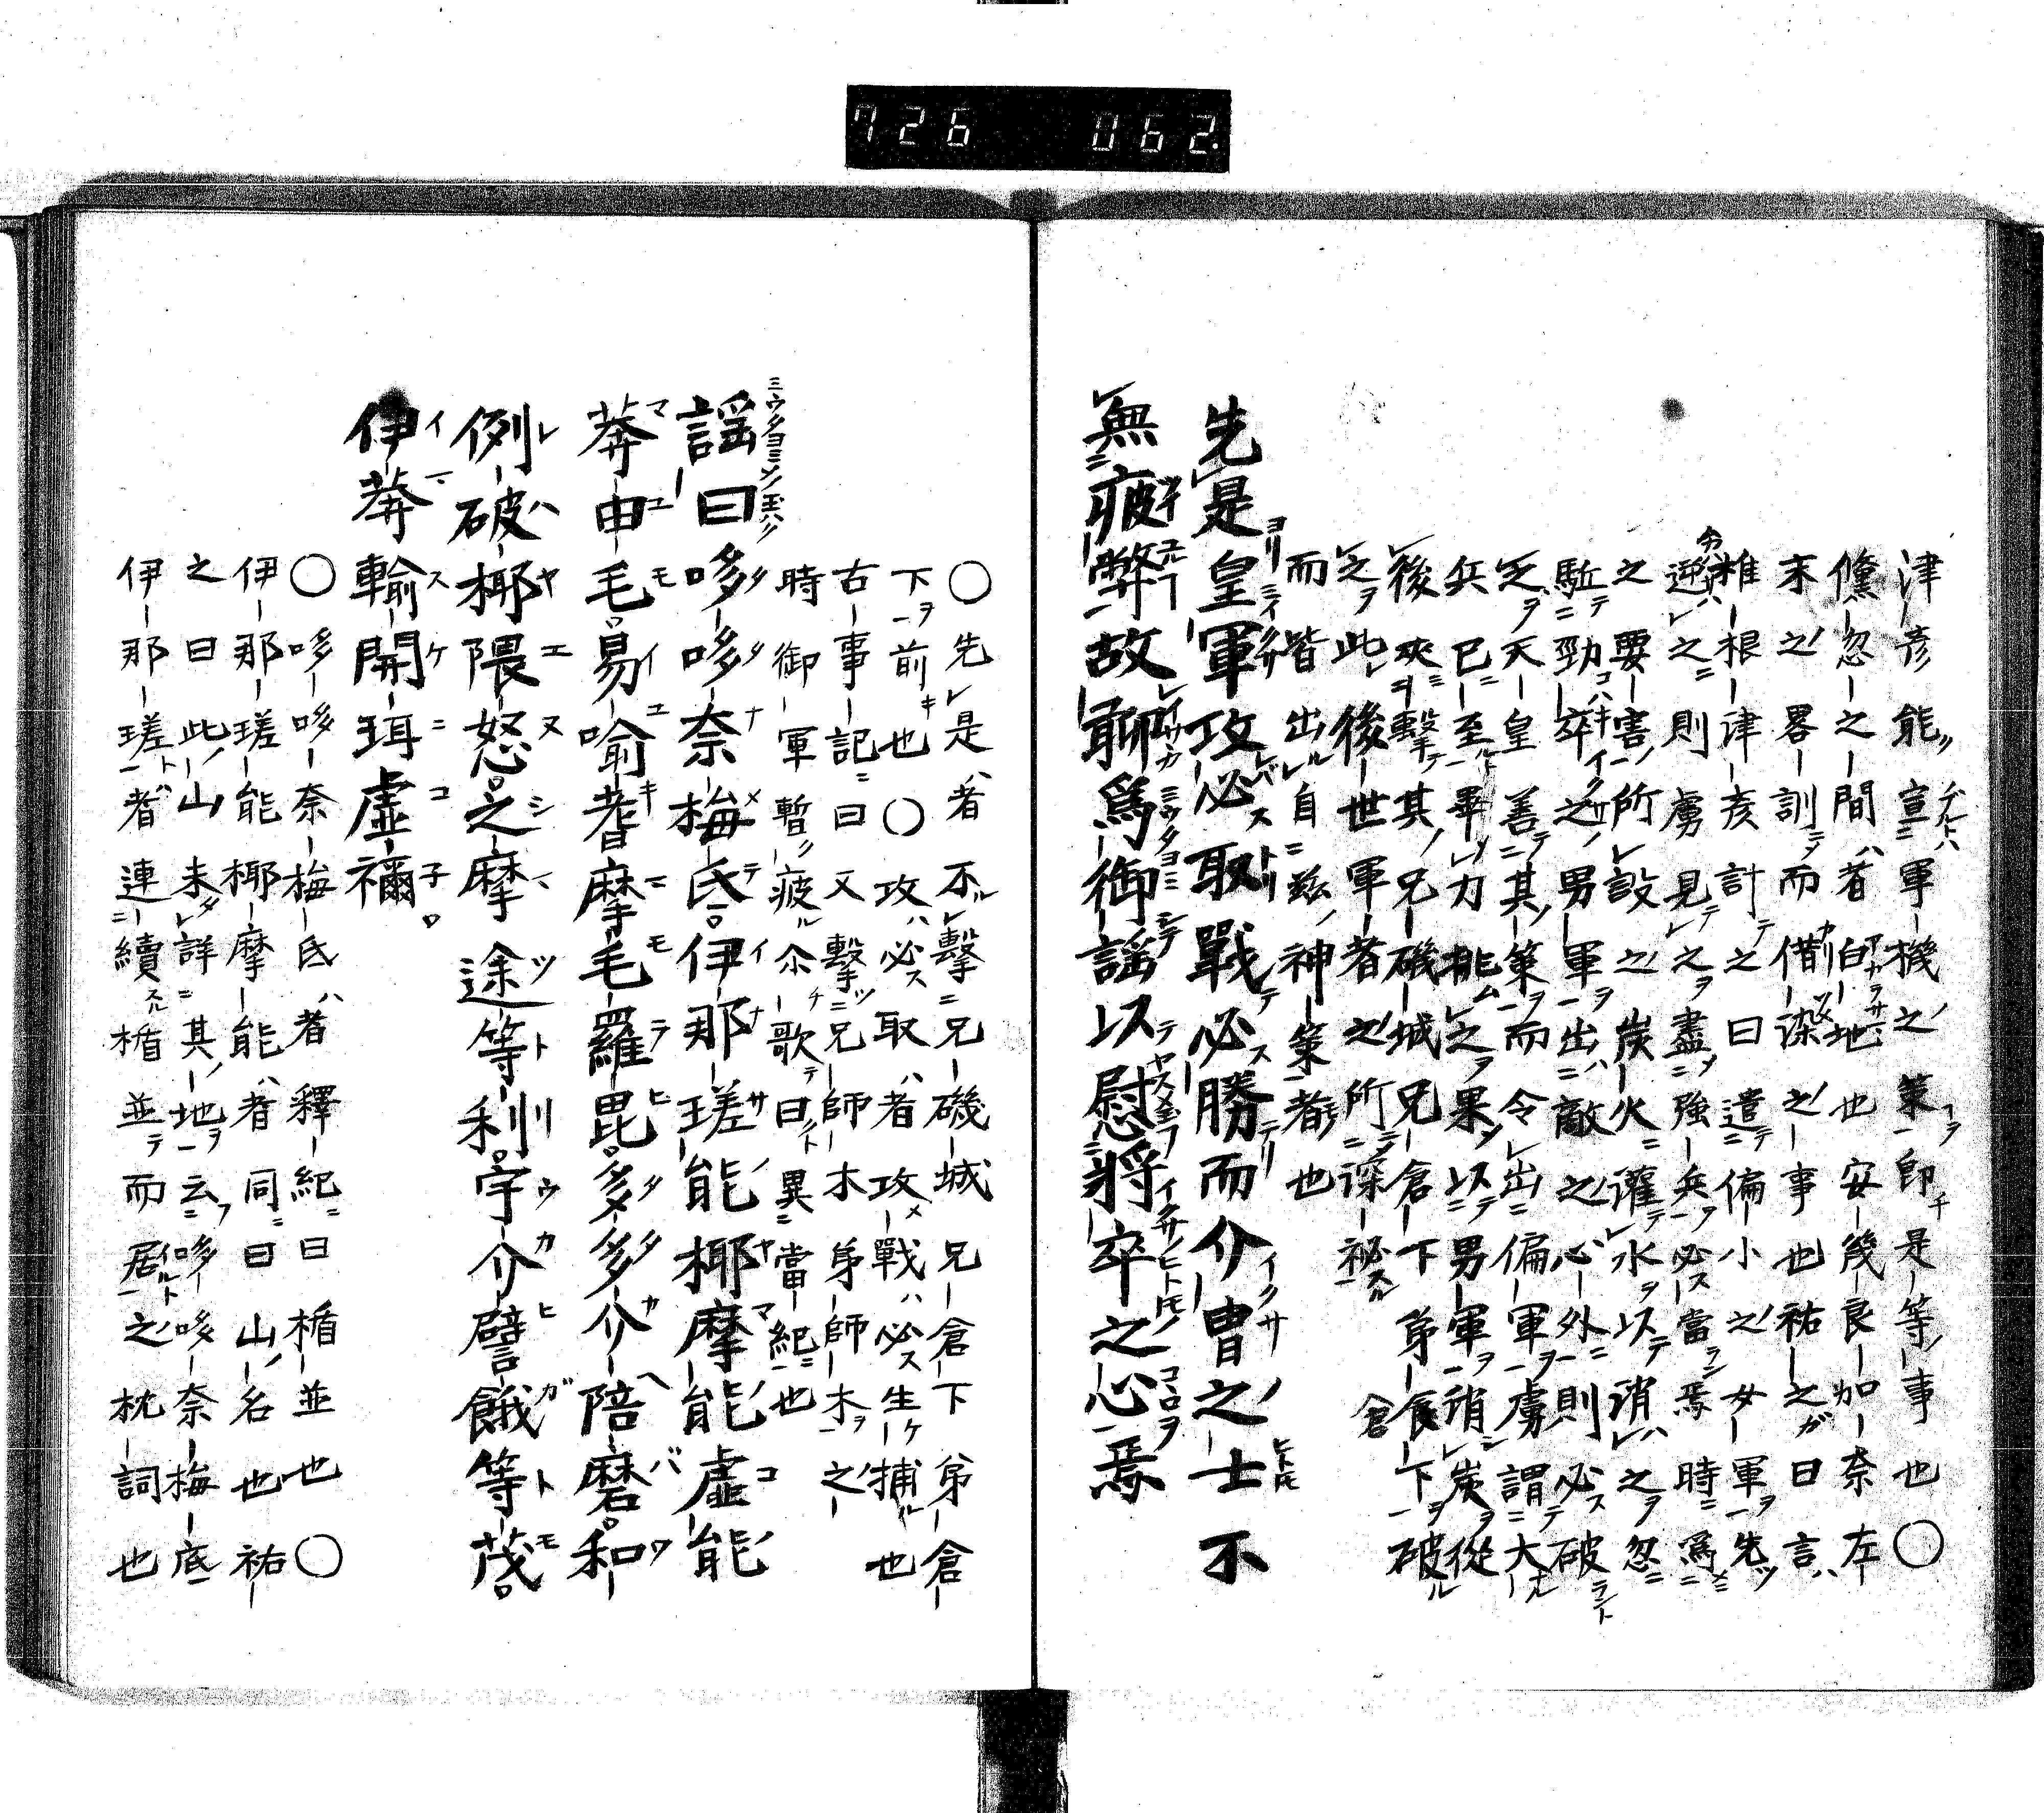 726 062.
津彦能宣軍機之策即是等事也〇
儻忽之間者白地也安幾良加奈左
末之畧訓而借深之事也祐之曰言
椎根津彦計之曰遣偏小之女軍先
逆之則虜見之盡強兵必當焉時為
之要害所設之炭火灌水以消之忽
駈勁卒之男軍出敵之心外則必破
之天皇善其策而令出偏軍虜謂大
兵已至畢力挑之果以男軍消炭從
後夾擊其兄磯城兄倉下弟倉下破
之此後世軍者之所深祕
而皆出自茲神策者也
先是皇軍攻必取戰必勝而介胄之士不
無疲弊故聊爲御謡以慰將卒之心焉
〇先是者不擊兄磯城兄倉下弟倉
下前也〇攻必取者攻戰必生捕也
古事記曰又擊兄師木弟師木之
時御軍暫疲尒歌曰異當紀也
謡曰哆哆奈梅氐伊那瑳能椰摩能虛能
莾由毛易喻耆摩毛羅毘多多介陪磨和
例破椰隈怒之摩途等利宇介譬餓等茂
伊莾輸開珥虛禰
〇哆哆奈梅氐者釋紀曰楯並也〇
伊那瑳能椰摩能者同曰山名也祐
之曰此山未詳其地云哆哆奈梅底
伊那瑳者連續楯並而居之枕詞也